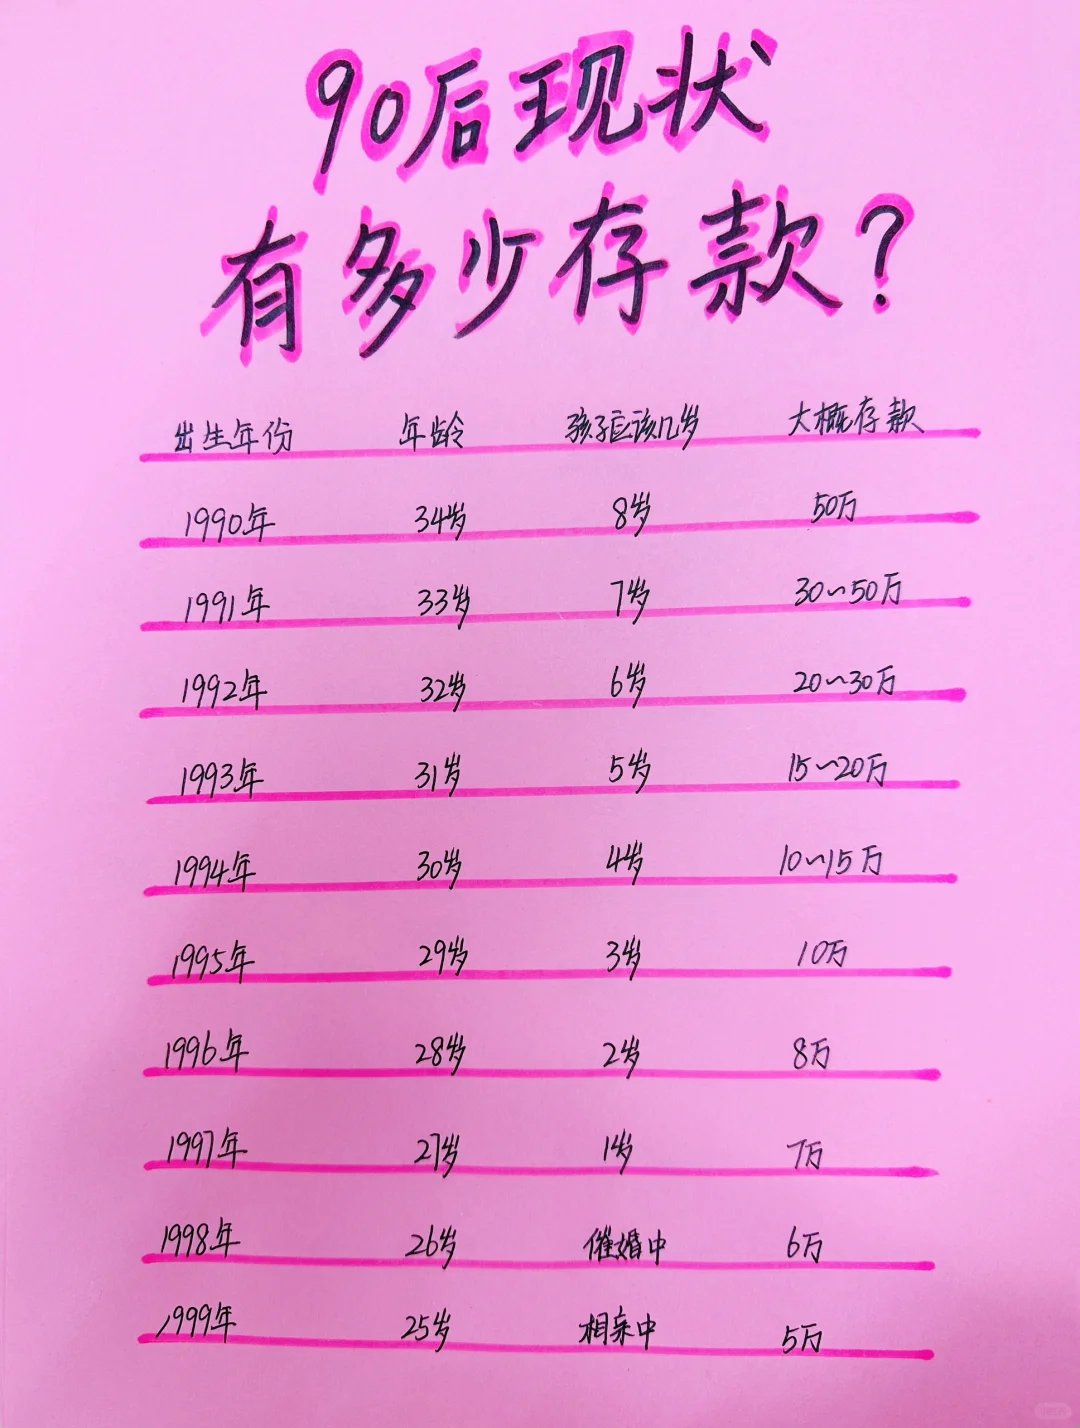 90后现状
有多少存款?
出生年份 年龄 孩子应该几岁 大概存款
1990年 34岁 8岁 50万
1991年 33岁 7岁 30~50万
1992年 32岁 6岁 20~30万
1993年 31岁 5岁 15~20万
1994年 30岁 4岁 10~15万
1995年 29岁 3岁 10万
1996年 28岁 2岁 8万
1997年 27岁 1岁 7万
1998年 26岁 催婚中 6万
1999年 25岁 相亲中 5万